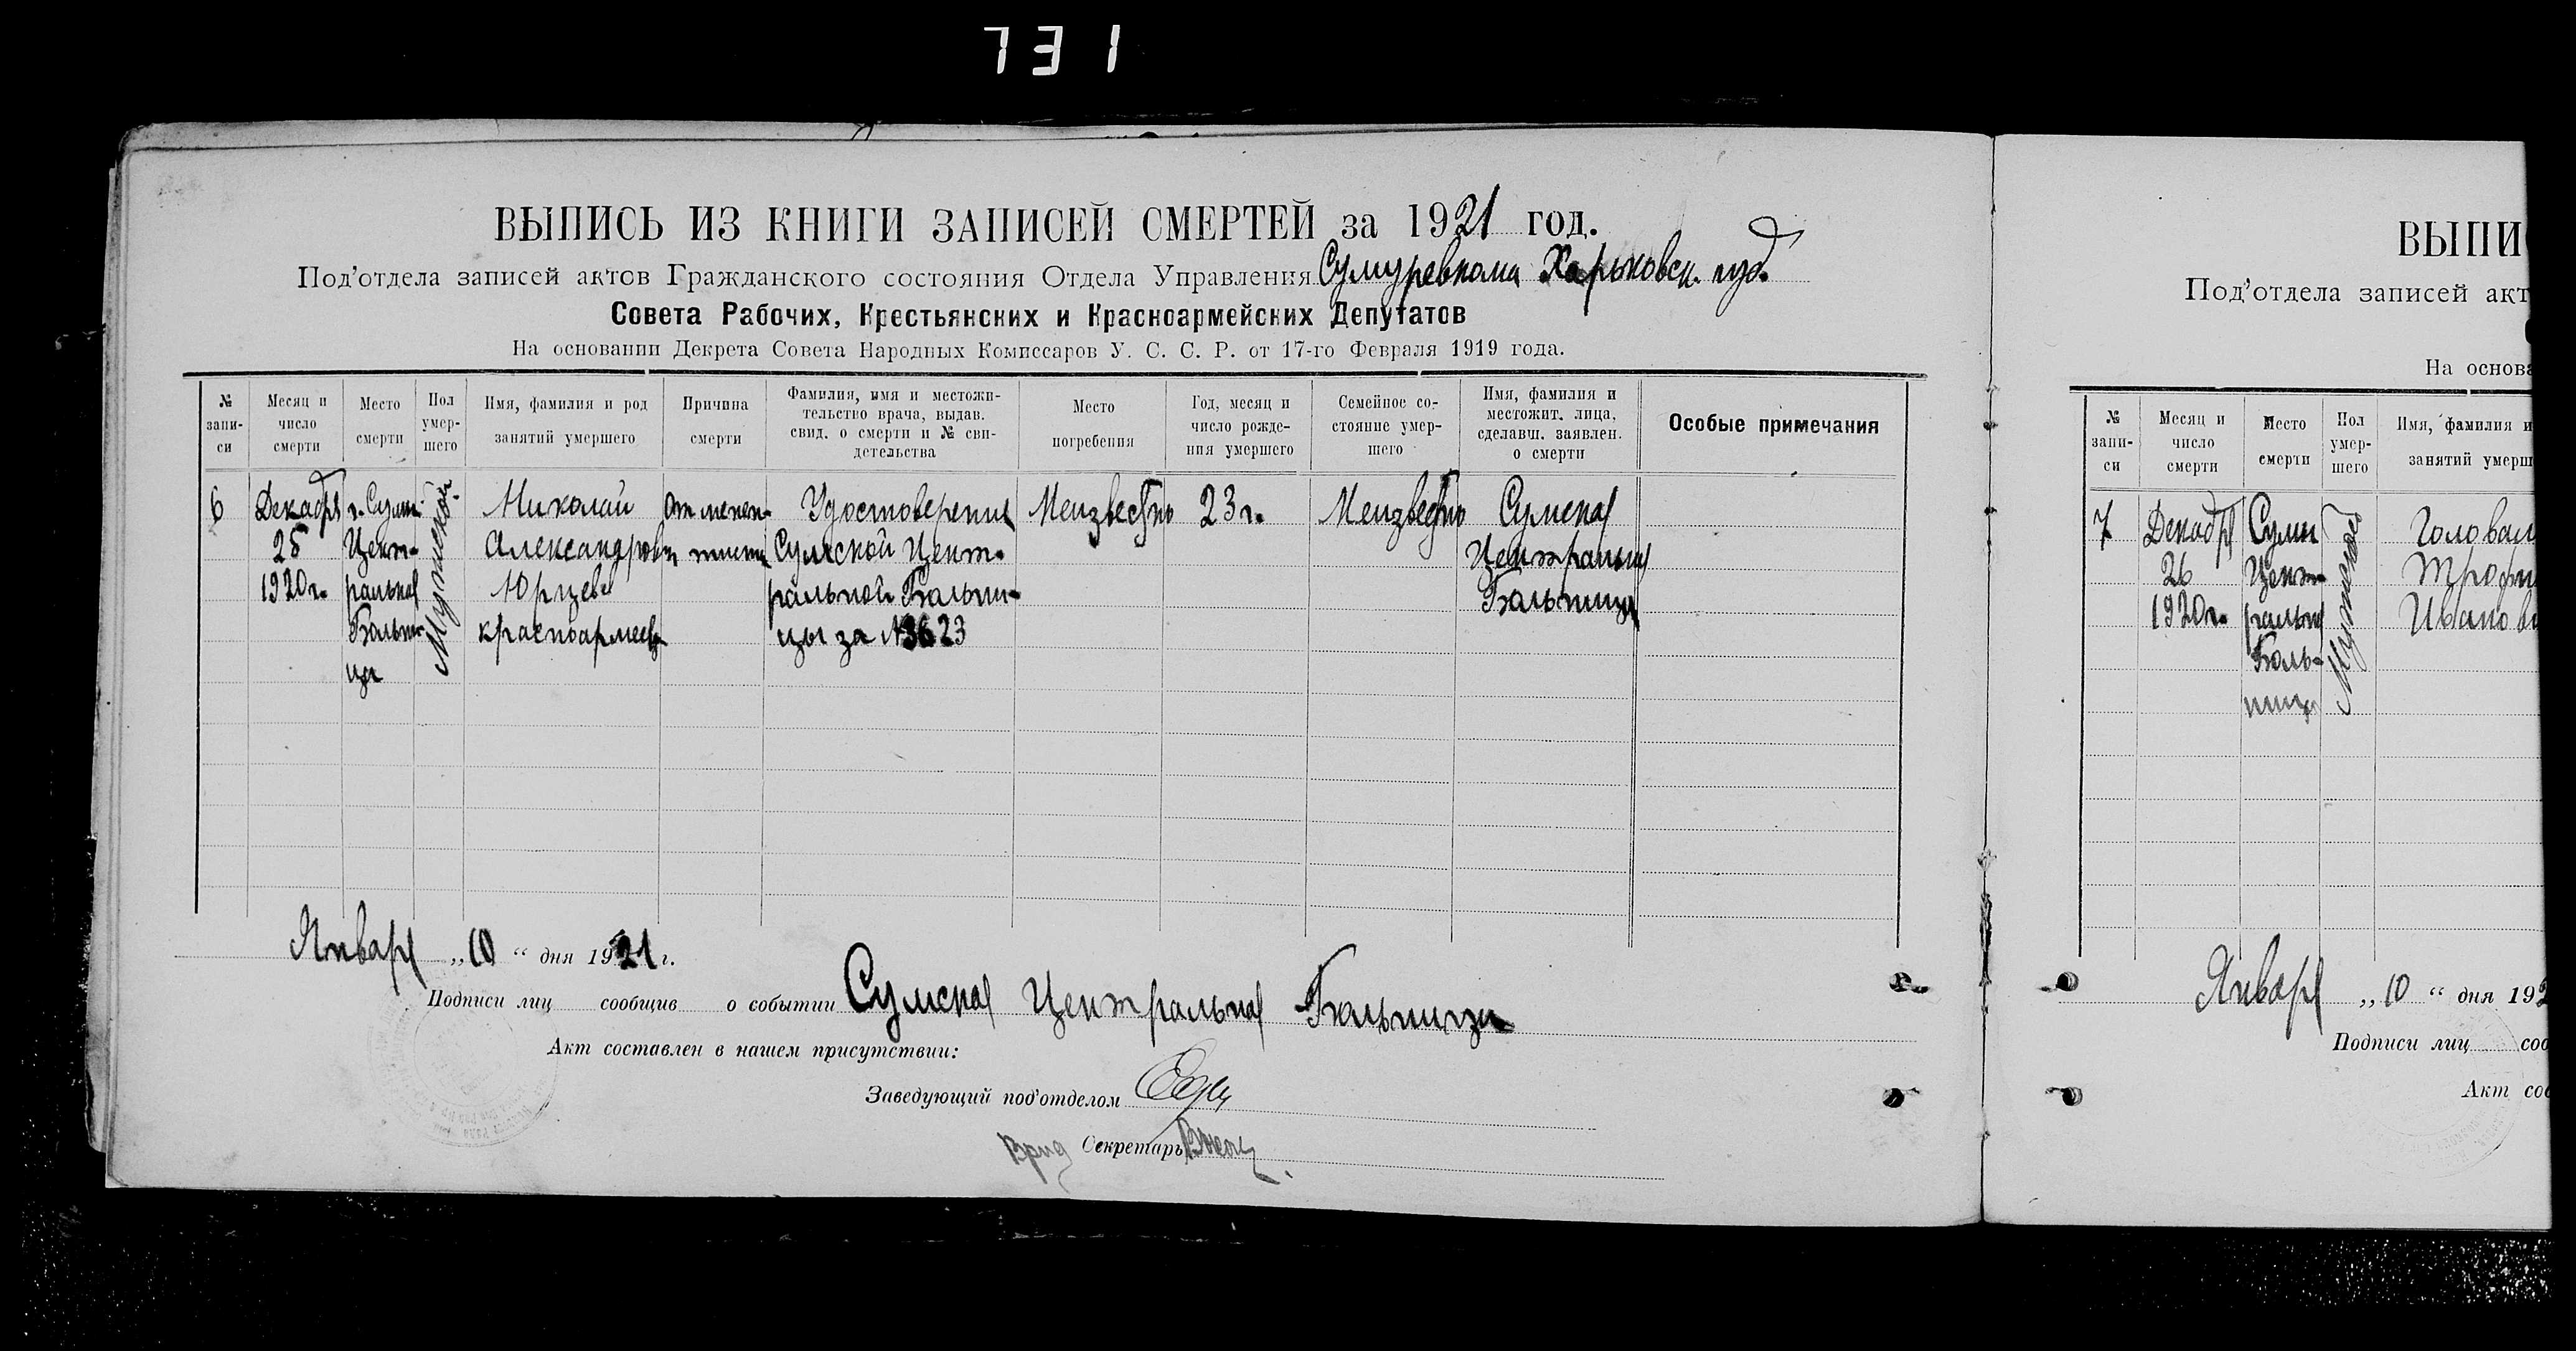 731
ВЫПИСЬ ИЗ КНИГИ ЗАПИСЕЙ СМЕРТЕЙ за 1921 год.
Под'отдела записей актов Гражданского состояния Отдела Управления Сумуревкома Харьковск. губ.
Совета Рабочих, Крестьянских и Красноармейских Депутатов
На основании Декрета Совета Народных Комиссаров У. С. С. Р. от 17-го Февраля 1919 года.
№ запи-
си
Месяц и
число
смерти
Место
смерти
Пол
умер-
шего
Имя, фамилия и род
занятий умершего
Причина
смерти
Фамилия, имя и местожи-
тельство врача, выдав.
свид. о смерти и № сви-
детельства
Место
погребения
Год, месяц и
число рожде-
ния умершего
Семейное со-
стояние умер-
шего
Имя, фамилия и
местожит. лица,
сделавш. заявлен.
о смерти
Особые примечания
6
Декабря
25
1920 г.
г. Сумы
Цент-
ральная
Больни-
ца
Мужской
Николай
Александрович
Юрцев
красноармеец
Удостоверение
Сумской Цент-
ральной Больни-
цы за №3623
Неизвестно
23 г.
Неизвестно
Сумская
Центральная
Больница
Января „10“ дня 1921 г.
Подписи лиц сообщив о событии Сумская Центральная Больница
Акт составлен в нашем присутствии:
Заведующий под'отделом
Врид Секретарь
ВЫПИ
Под'отдела записей акт
На основа
№
запи-
си
Месяц и
число
смерти
Место
смерти
Пол
умер-
шего
Имя, фамилия и
занятий умерш
7
Декабря
26
1920 г.
Сумы
Цент-
ральная
Боль-
ница
Мужской
Января „10“ дня 192
Подписи лиц соо
Акт сос